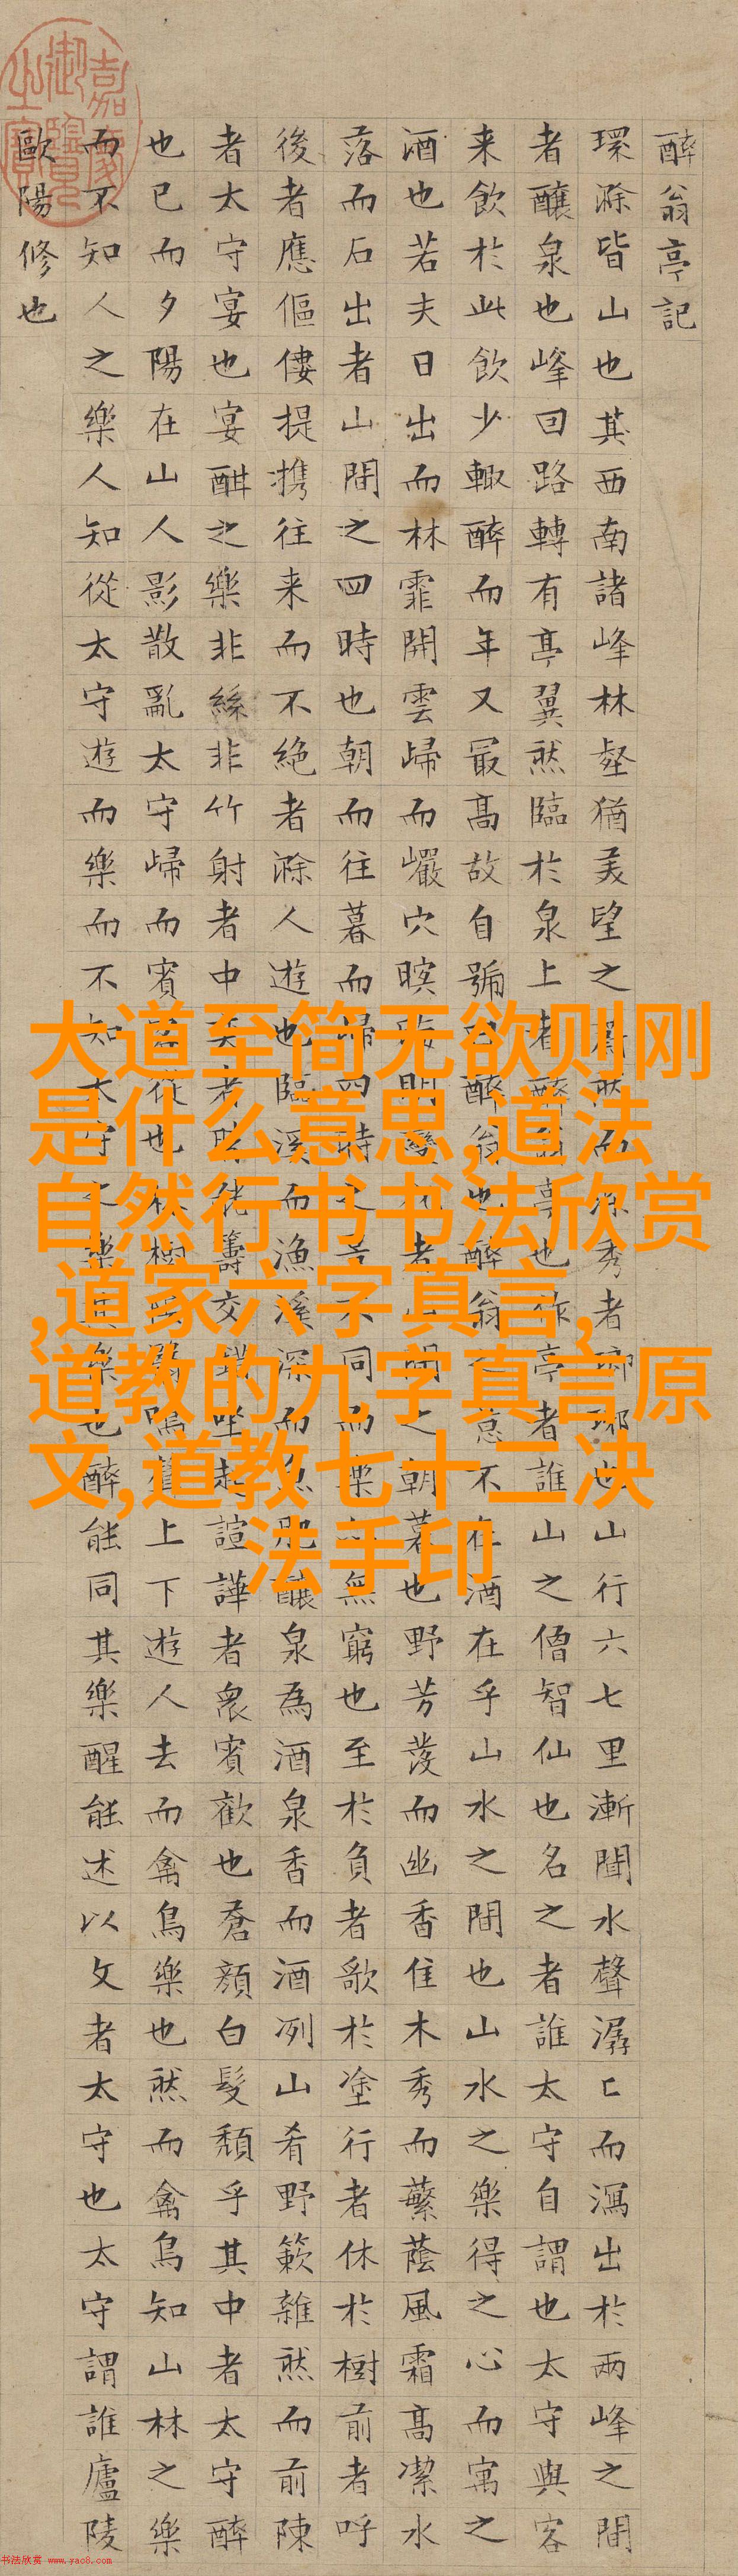 醉翁亭記
環滁皆山也其西南諸峰林壑猶美望之蔚然而深秀者瑯琊也山行六七里漸聞水聲潺ヒ而瀉出於兩峰之間
者釀泉也峰回路轉有亭翼然臨於泉上者醉翁亭也作亭者誰山之僧智仙也名之者誰太守自謂也太守與客
来飲於此飲少輒醉而年又最高故自號曰醉翁也醉翁之意不在酒在乎山水之間也山水之樂得之心而寓之
酒也若夫日出而林霏開雲歸而巖穴暝晦明變化者山間之朝暮也野芳發而幽香佳木秀而蘩蔭風霜高潔水
落而石出者山間之四時也朝而往暮而歸四時之景不同而樂亦無窮也至於負者歌於塗行者休於樹前者呼
後者應傴僂提携往来而不絕者滁人遊也臨溪而漁溪深而魚肥釀泉為酒泉香而酒洌山肴野簌雜然而前陳
者太守宴也宴酣之樂非絲非竹射者中奕者勝觥籌交錯坐起諠譁者眾賓歡也蒼顏白髮頹乎其中者太守醉
也已而夕陽在山人影散亂太守歸而賓客從也樹陰翳鳴聲上下遊人去而禽鳥樂也然而禽鳥知山林之樂
而不知人之樂人知從太守遊而樂而不知太守之樂其樂也醉能同其樂醒能述以文者太守也太守謂誰廬陵
歐陽修也
嘉慶御覽之寶
大道至简无欲则刚
是什么意思,道法
自然行书书法欣赏
,道家六字真言,
道教的九字真言原
文,道教七十二决
法手印
书法欣赏 www.yac8.com